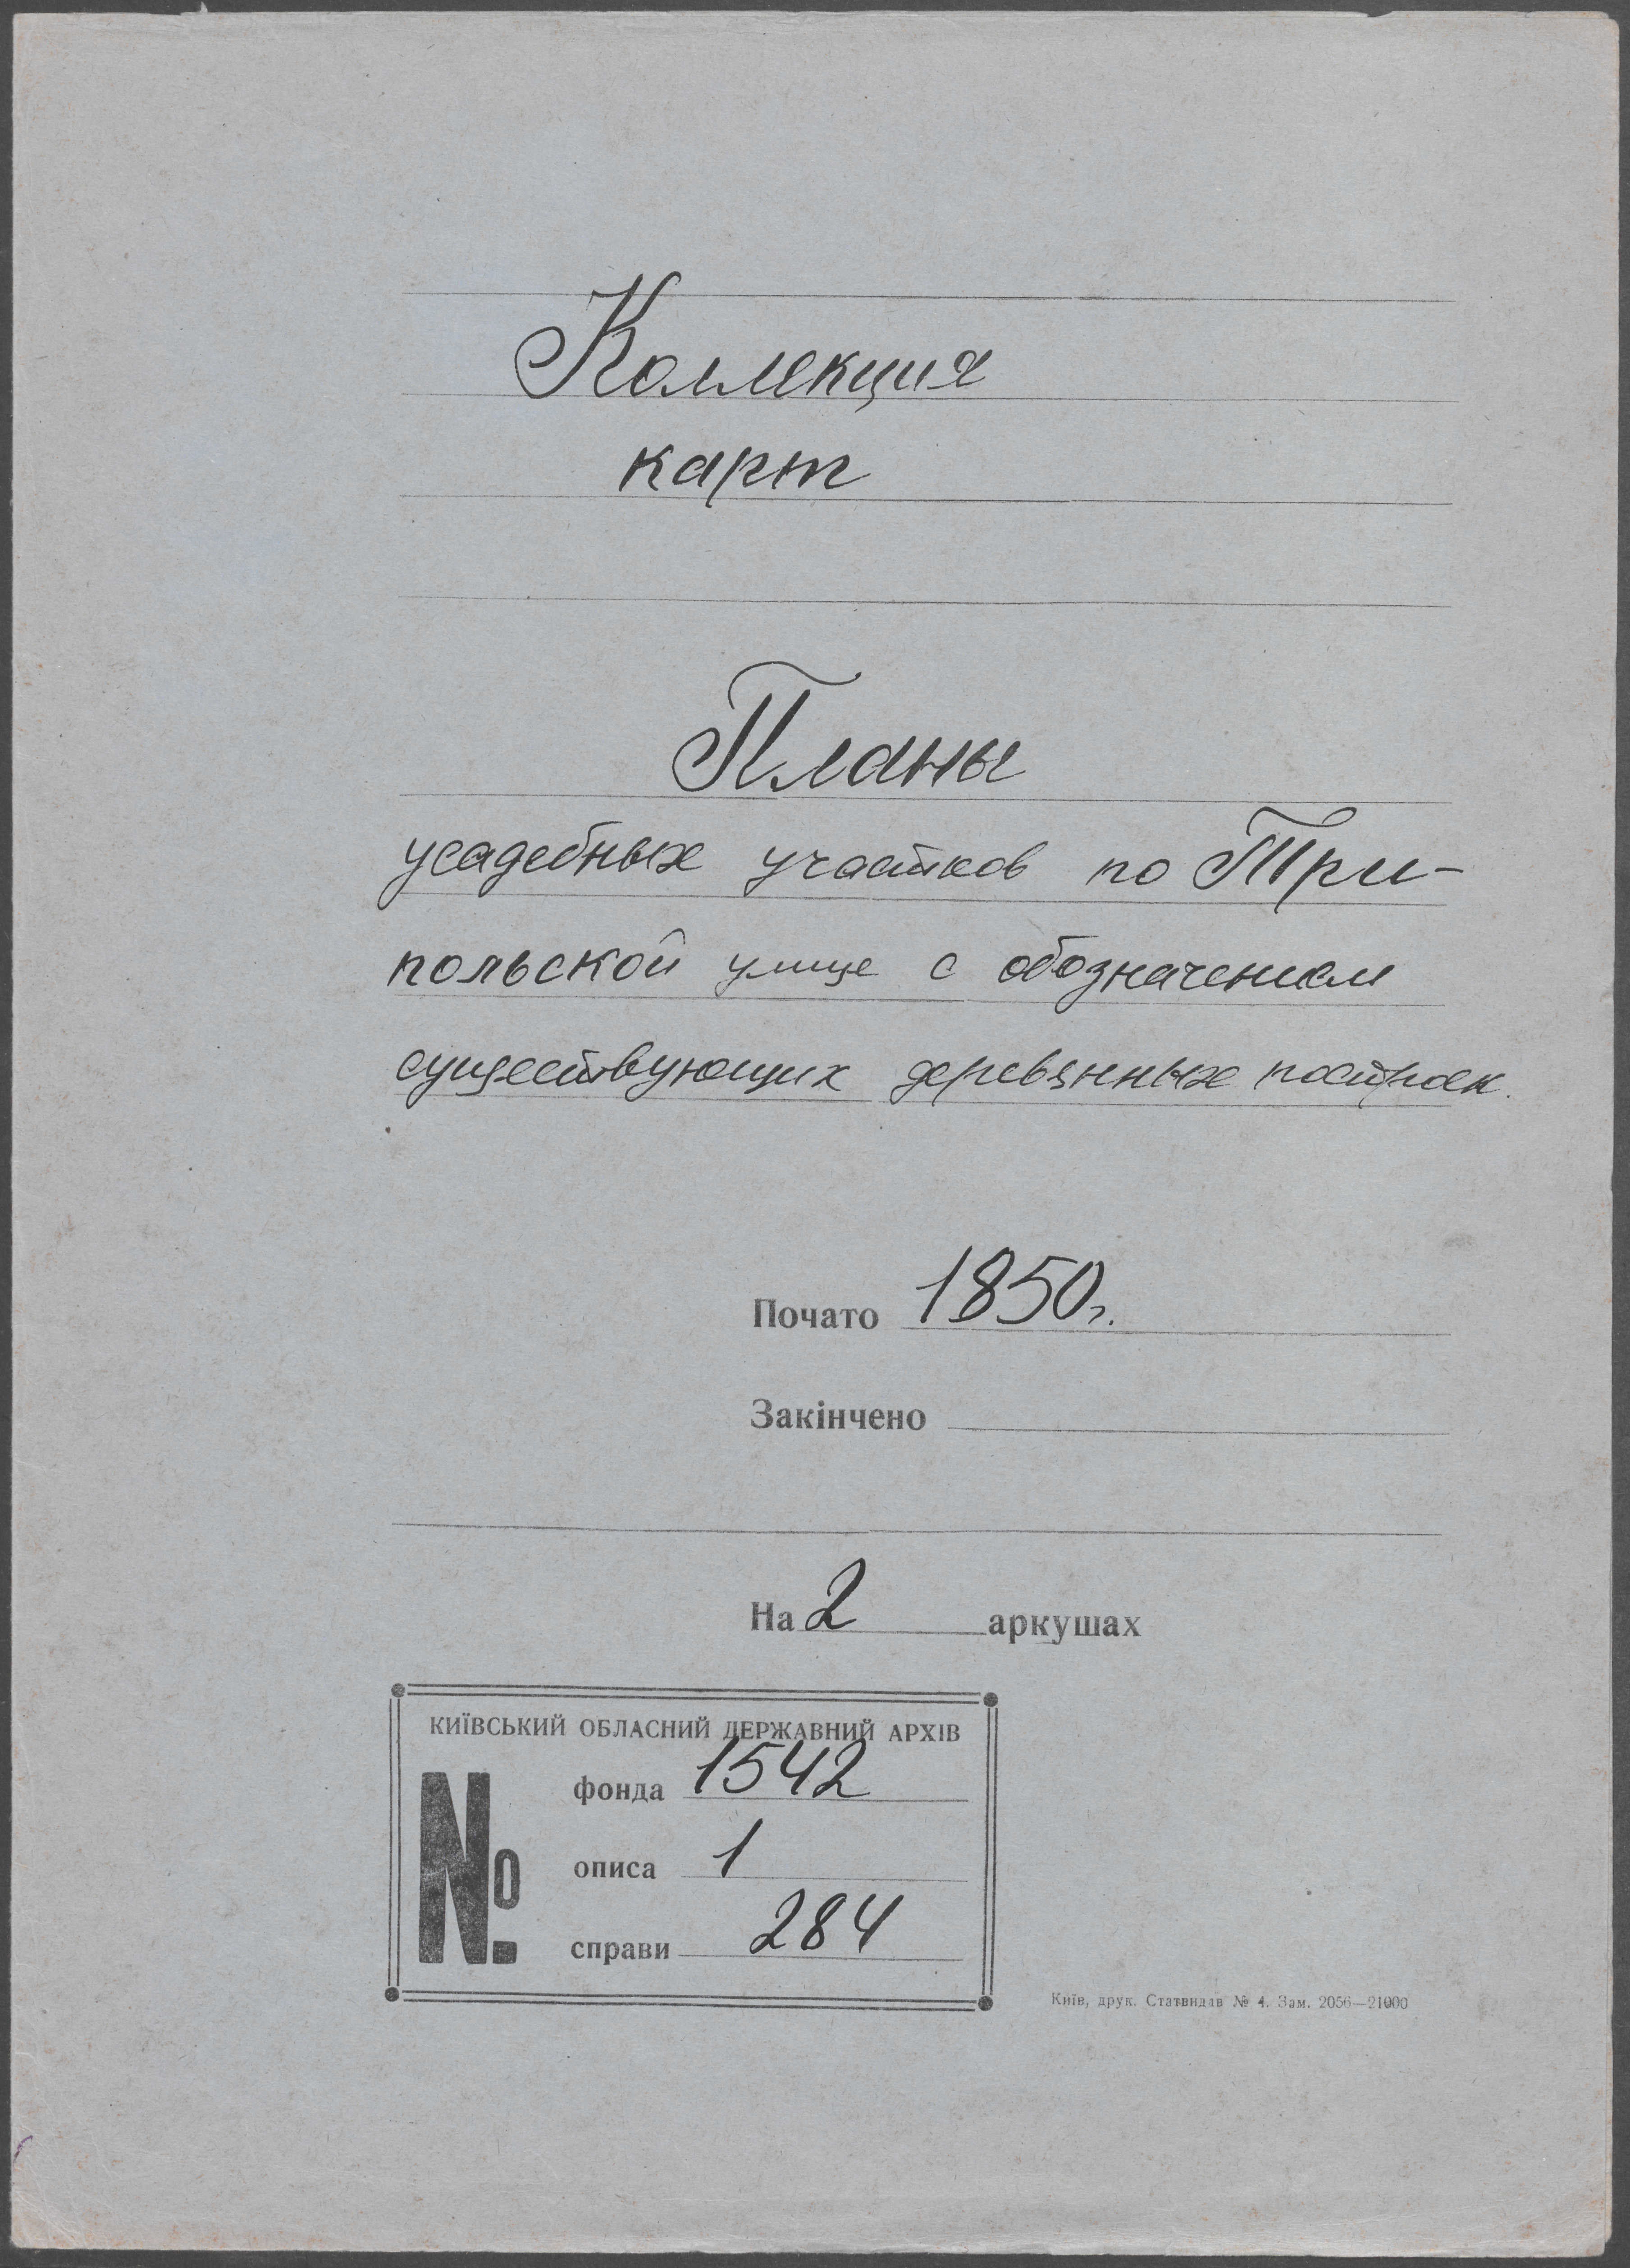 Коллекция
карт
Планы
усадебных участков по Три-
польской улице с обозначением
существующих деревянных построек.
Почато 1850г.
Закінчено
На 2 аркушах
КИЇВСЬКИЙ ОБЛАСНИЙ ДЕРЖАВНИЙ АРХІВ
№
фонда 1542
описа 1
справи 284
Київ, друк. Статвидав № 4. Зам. 2056—21000